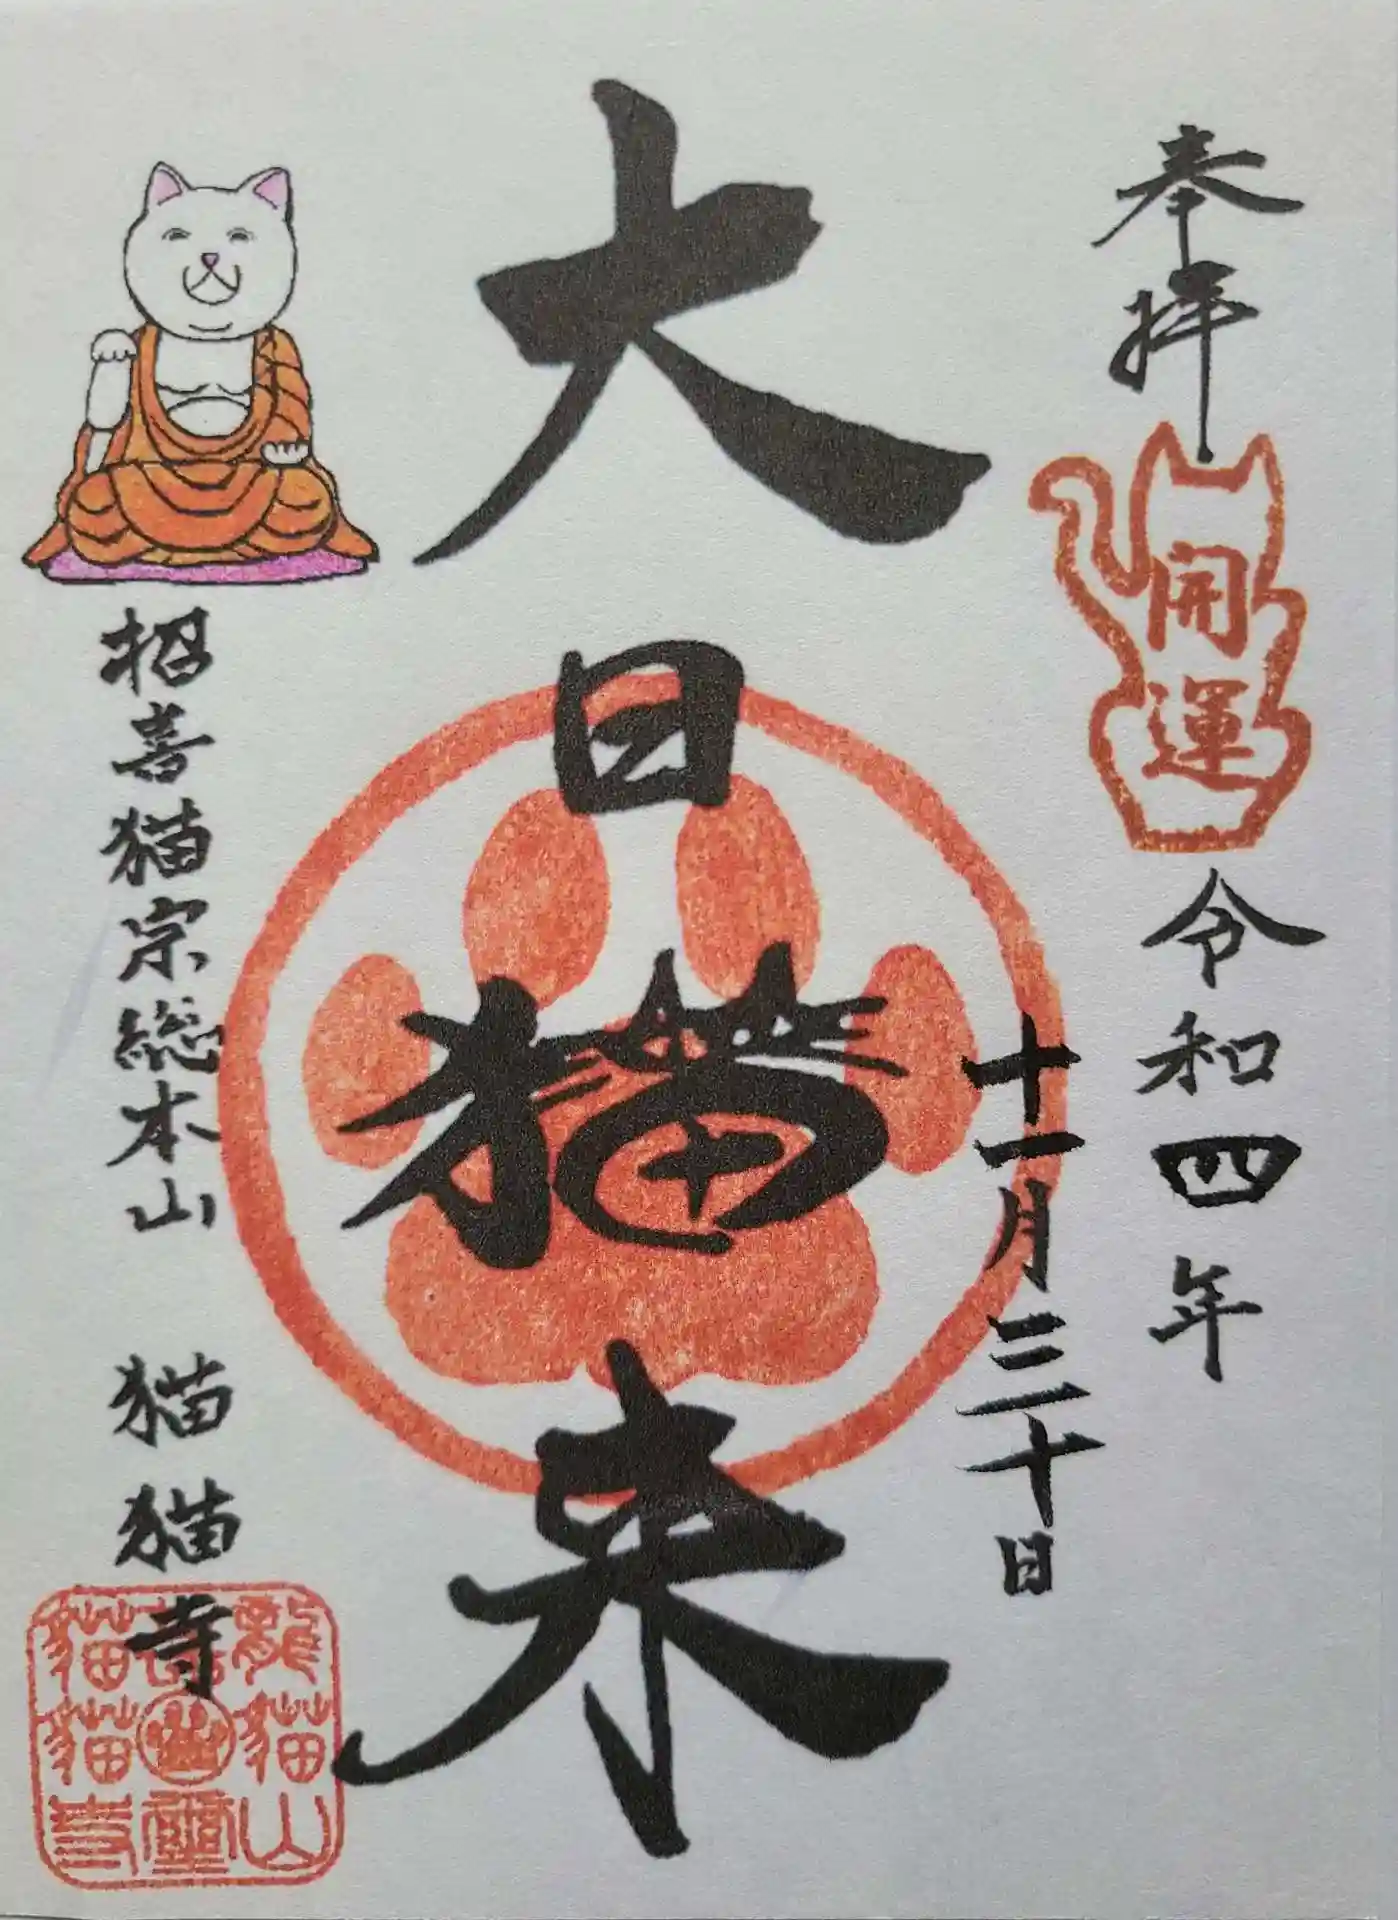 奉拝
開運
令和四年
十一月三十日
大日猫来
招喜猫宗総本山 猫猫寺
龍猫山
猫猫寺